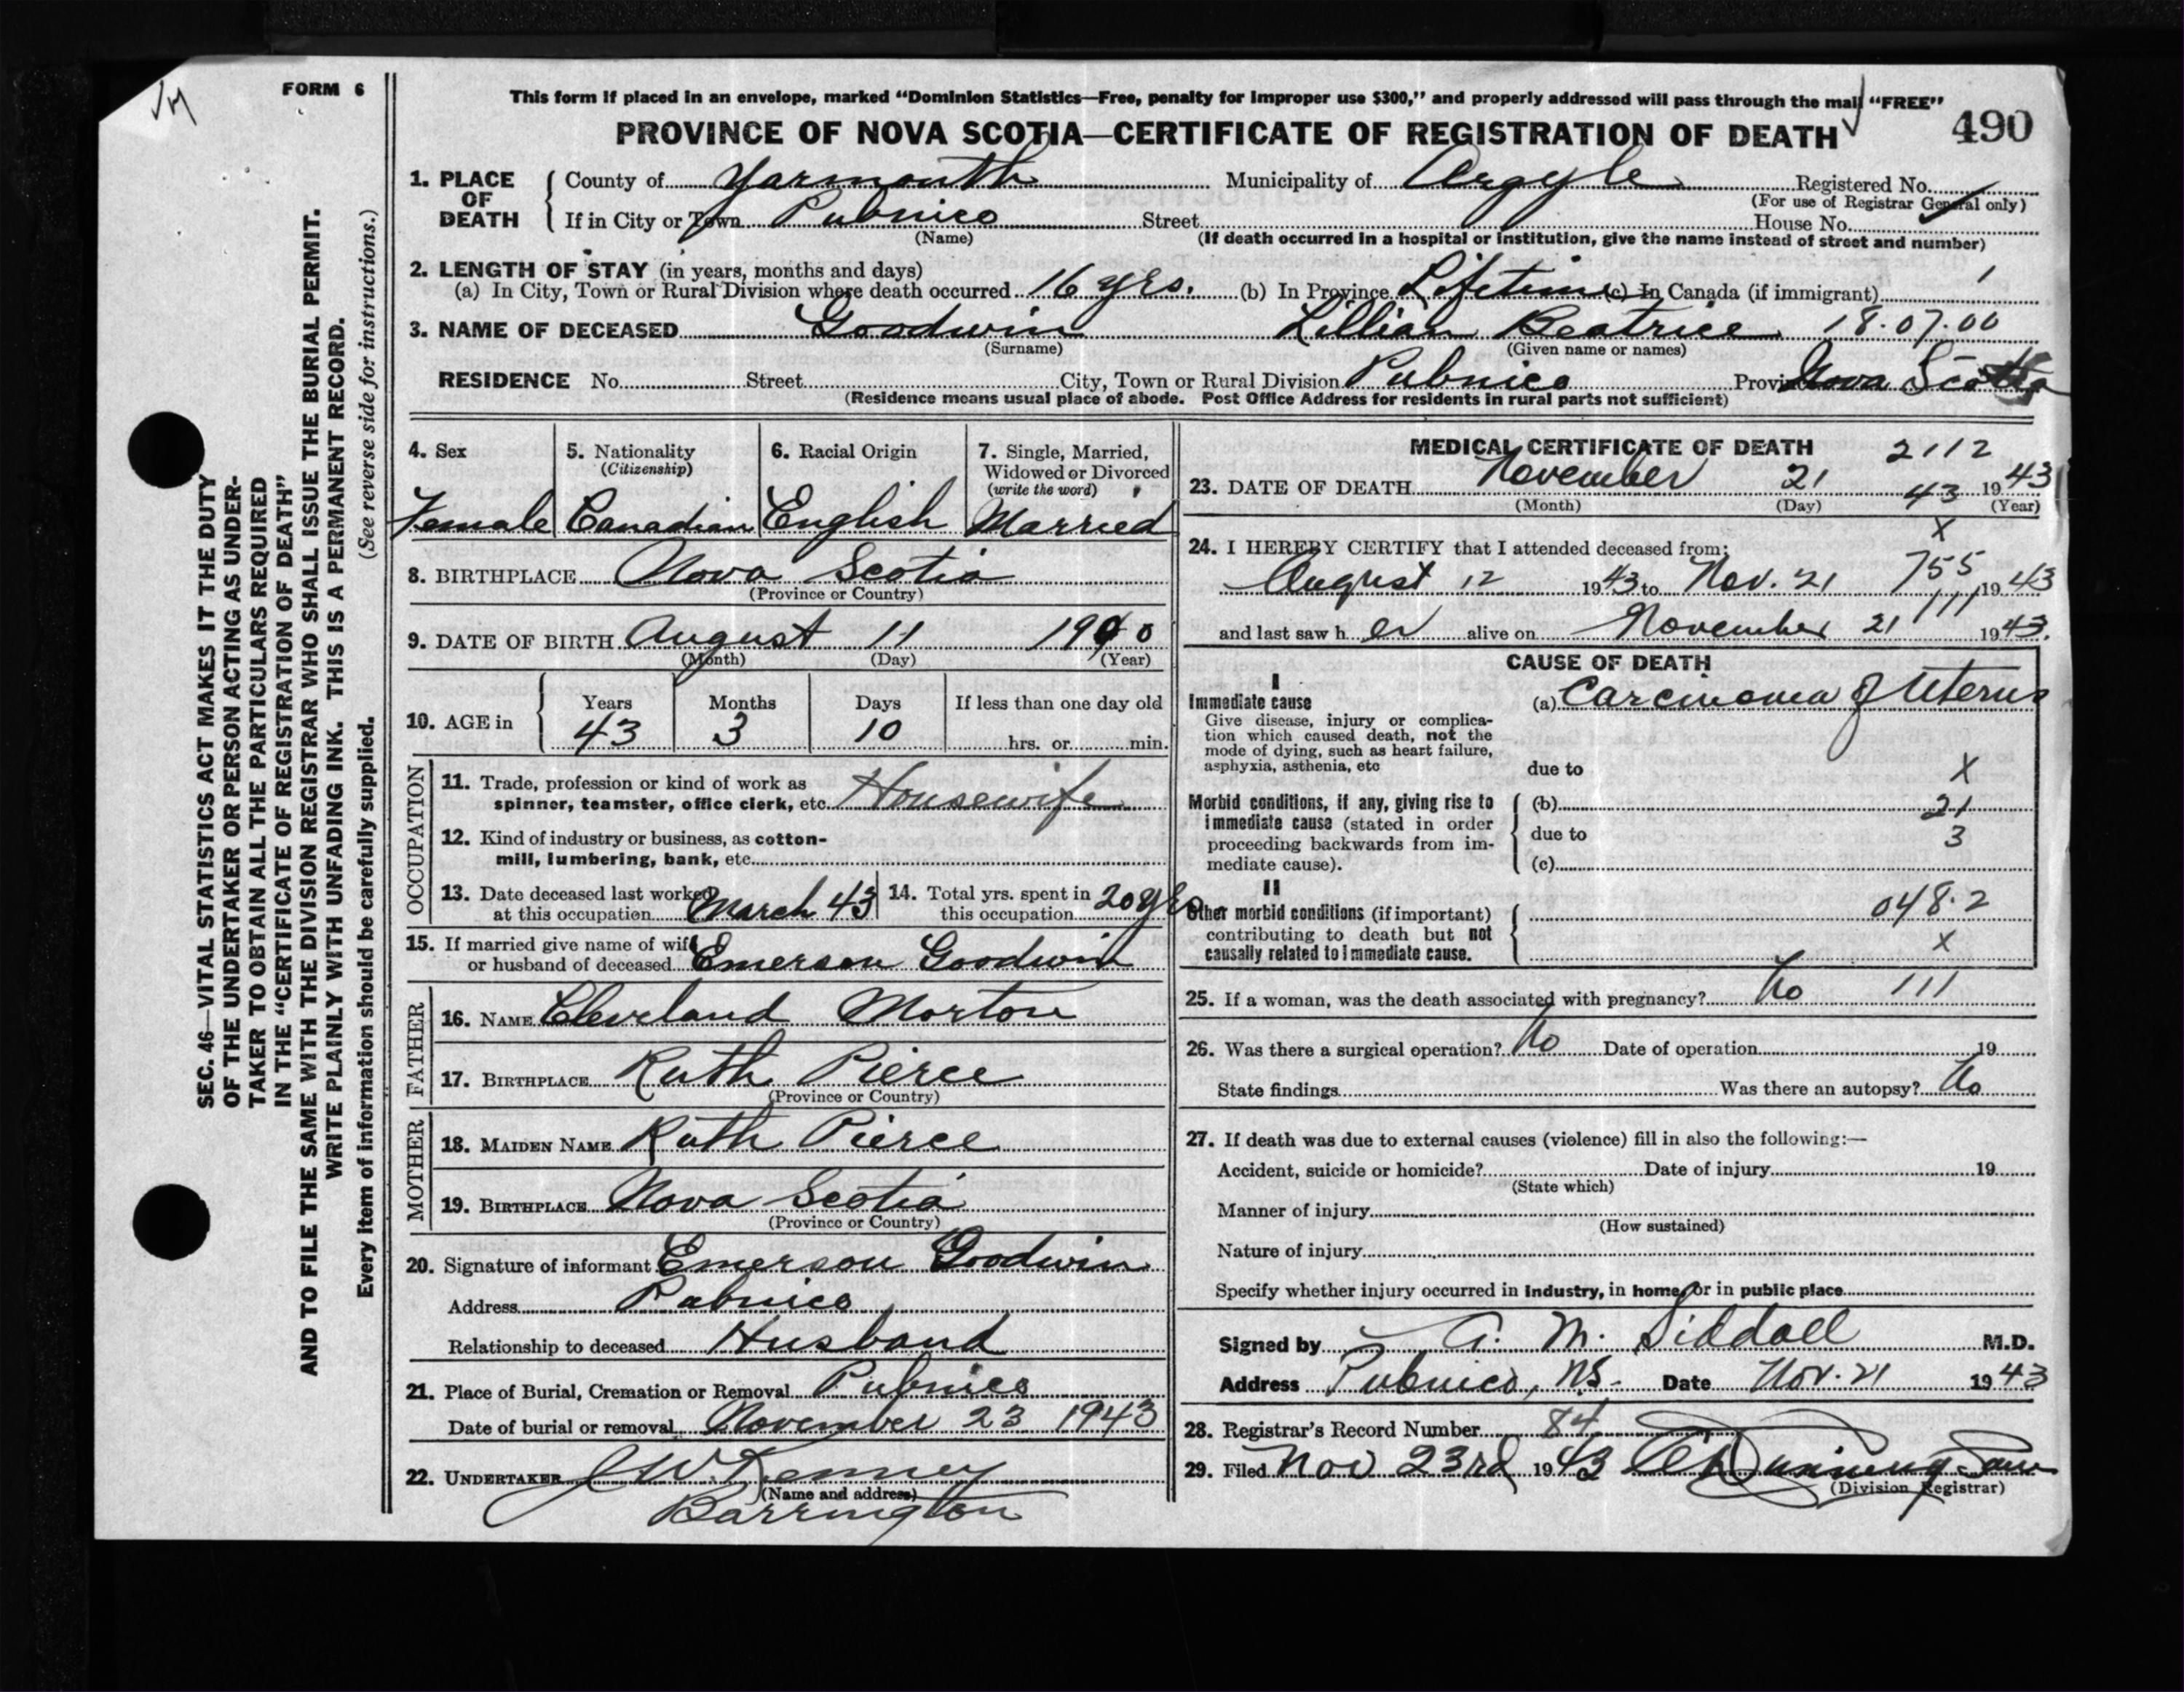 FORM 6
This form if placed in an envelope, marked “Dominion Statistics—Free, penalty for improper use $300,” and properly addressed will pass through the mail “FREE”
PROVINCE OF NOVA SCOTIA—CERTIFICATE OF REGISTRATION OF DEATH
490
1. PLACE OF DEATH
County of Yarmouth Municipality of Argyle Registered No.
(For use of Registrar General only)
If in City or Town Pubnico Street House No.
(Name) (If death occurred in a hospital or institution, give the name instead of street and number)
2. LENGTH OF STAY (in years, months and days)
(a) In City, Town or Rural Division where death occurred 16 yrs. (b) In Province Lifetime (c) In Canada (if immigrant)
3. NAME OF DECEASED Goodwin Lillian Beatrice 18.07.00
(Surname) (Given name or names)
RESIDENCE No. Street City, Town or Rural Division Pubnico Province Nova Scotia
(Residence means usual place of abode. Post Office Address for residents in rural parts not sufficient)
4. Sex
Female
5. Nationality
(Citizenship)
Canadian
6. Racial Origin
English
7. Single, Married,
Widowed or Divorced
(write the word)
Married
8. BIRTHPLACE Nova Scotia
(Province or Country)
9. DATE OF BIRTH August 11 1900
(Month) (Day) (Year)
10. AGE in
Years Months Days If less than one day old
43 3 10 hrs. or min.
OCCUPATION
11. Trade, profession or kind of work as
spinner, teamster, office clerk, etc. Housewife
12. Kind of industry or business, as cotton-
mill, lumbering, bank, etc.
13. Date deceased last worked
at this occupation March 43
14. Total yrs. spent in
this occupation 20 yrs.
15. If married give name of wife
or husband of deceased Emerson Goodwin
FATHER
16. NAME Cleveland Morton
17. BIRTHPLACE Ruth Pierce
(Province or Country)
MOTHER
18. MAIDEN NAME Ruth Pierce
19. BIRTHPLACE Nova Scotia
(Province or Country)
20. Signature of informant Emerson Goodwin
Address Pubnico
Relationship to deceased Husband
21. Place of Burial, Cremation or Removal Pubnico
Date of burial or removal November 23 1943
22. UNDERTAKER J W. Kenney
(Name and address)
Barrington
MEDICAL CERTIFICATE OF DEATH 2112
23. DATE OF DEATH November 21 43 1943
(Month) (Day) (Year)
X
24. I HEREBY CERTIFY that I attended deceased from:
August 12 1943 to Nov. 21 755 1943
111
and last saw her alive on November 21 1943.
CAUSE OF DEATH
I
Immediate cause (a) Carcinoma of Uterus
Give disease, injury or complica-
tion which caused death, not the
mode of dying, such as heart failure,
asphyxia, asthenia, etc
due to X
Morbid conditions, if any, giving rise to
immediate cause (stated in order
proceeding backwards from im-
mediate cause).
(b) 21
due to 3
(c)
II
Other morbid conditions (if important)
contributing to death but not
causally related to immediate cause.
048.2
X
25. If a woman, was the death associated with pregnancy? No 111
26. Was there a surgical operation? No Date of operation 19
State findings Was there an autopsy? No
27. If death was due to external causes (violence) fill in also the following:—
Accident, suicide or homicide? Date of injury 19
(State which)
Manner of injury
(How sustained)
Nature of injury
Specify whether injury occurred in industry, in home, or in public place
Signed by A. M. Siddall M.D.
Address Pubnico, N.S. Date Nov. 21 1943
28. Registrar's Record Number 84
29. Filed Nov 23rd 1943
(Division Registrar)
SEC. 46—VITAL STATISTICS ACT MAKES IT THE DUTY
OF THE UNDERTAKER OR PERSON ACTING AS UNDER-
TAKER TO OBTAIN ALL THE PARTICULARS REQUIRED
IN THE “CERTIFICATE OF REGISTRATION OF DEATH”
AND TO FILE THE SAME WITH THE DIVISION REGISTRAR WHO SHALL ISSUE THE BURIAL PERMIT.
WRITE PLAINLY WITH UNFADING INK. THIS IS A PERMANENT RECORD.
Every item of information should be carefully supplied. (See reverse side for instructions.)